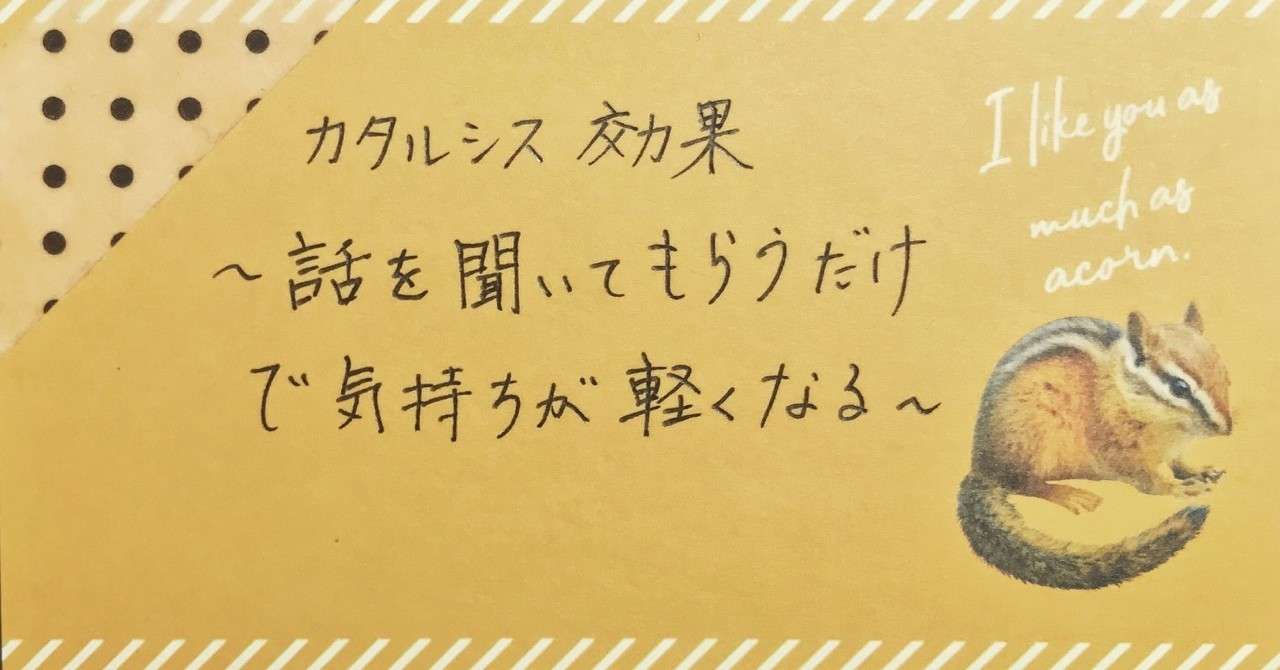 カタルシス効果
～話を聞いてもらうだけ
で気持ちが軽くなる～
I like you as
much as
acorn.